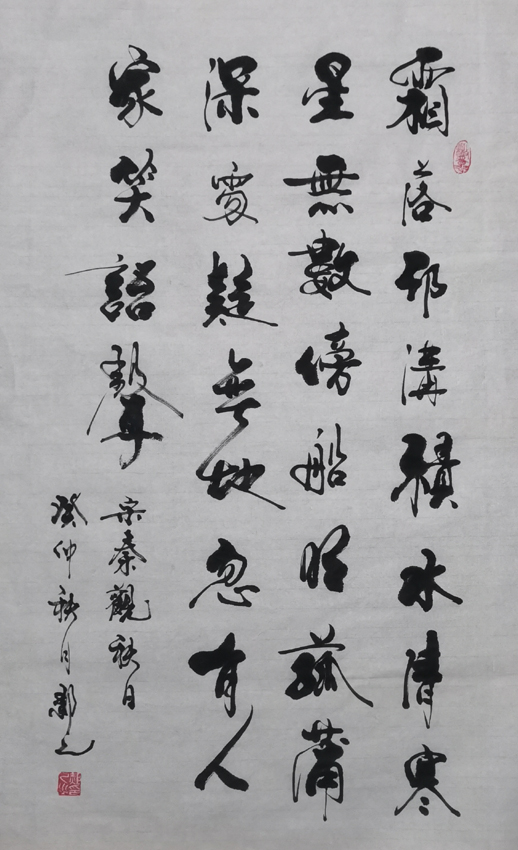 霜落邗溝積水清寒
星無數傍船明菰蒲
深處疑無地忽有人
家笑語聲
宋秦觀秋日
癸仲秋月